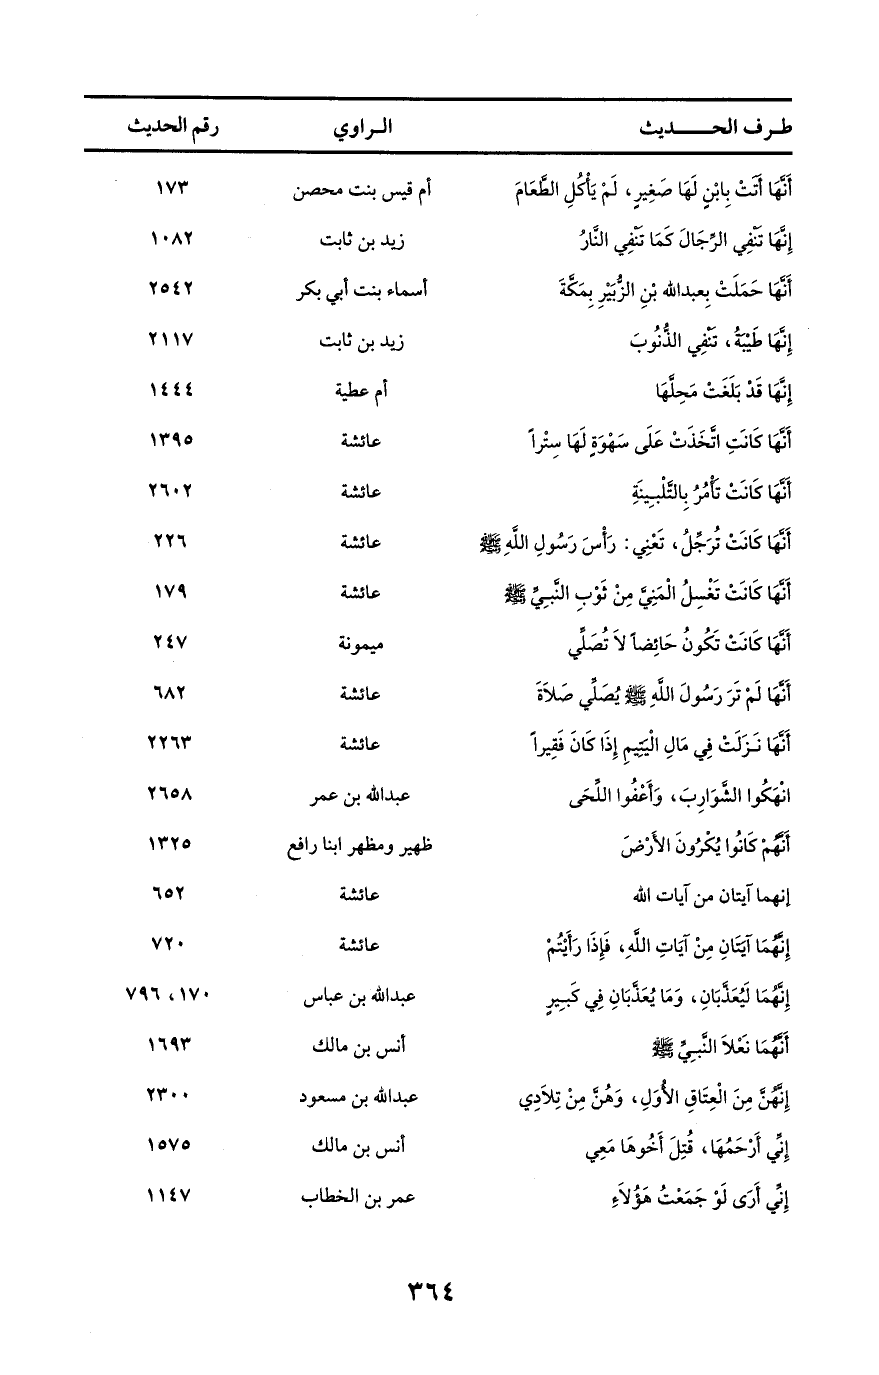 طـرف الحـــــديث الـراوي رقم الحديث
أَنَّهَا أَتَتْ بِابْنٍ لَهَا صَغِيرٍ، لَمْ يَأْكُلِ الطَّعَامَ أم قيس بنت محصن ١٧٣
إِنَّهَا تَنْفِي الرِّجَالَ كَمَا تَنْفِي النَّارُ زيد بن ثابت ١٠٨٢
أَنَّهَا حَمَلَتْ بِعبدالله بْنِ الزُّبَيْرِ بِمَكَّةَ أسماء بنت أبي بكر ٢٥٤٢
إِنَّهَا طَيْبَةُ، تَنْفِي الذُّنُوبَ زيد بن ثابت ٢١١٧
إِنَّهَا قَدْ بَلَغَتْ مَحِلَّهَا أم عطية ١٤٤٤
أَنَّهَا كَانَتِ اتَّخَذَتْ عَلَى سَهْوَةٍ لَهَا سِتْراً عائشة ١٣٩٥
أَنَّهَا كَانَتْ تَأْمُرُ بِالتَّلْبِينَةِ عائشة ٢٦٠٢
أَنَّهَا كَانَتْ تُرَجِّلُ، تَعْنِي: رَأْسَ رَسُولِ اللَّهِ ﷺ عائشة ٢٢٦
أَنَّهَا كَانَتْ تَغْسِلُ الْمَنِيَّ مِنْ ثَوْبِ النَّبِيِّ ﷺ عائشة ١٧٩
أَنَّهَا كَانَتْ تَكُونُ حَائِضاً لاَ تُصَلِّي ميمونة ٢٤٧
أَنَّهَا لَمْ تَرَ رَسُولَ اللَّهِ ﷺ يُصَلِّي صَلاَةَ عائشة ٦٨٢
أَنَّهَا نَـزَلَتْ فِي مَالِ الْيَتِيمِ إِذَا كَانَ فَقِيراً عائشة ٢٢٦٣
انْهَكُوا الشَّوَارِبَ، وَأَعْفُوا اللِّحَى عبدالله بن عمر ٢٦٥٨
أَنَّهُمْ كَانُوا يُكْرُونَ الأَرْضَ ظهير ومظهر ابنا رافع ١٣٢٥
إنهما آيتان من آيات الله عائشة ٦٥٢
إِنَّهُمَا آيَتَانِ مِنْ آيَاتِ اللَّهِ، فَإِذَا رَأَيْتُمْ عائشة ٧٢٠
إِنَّهُمَا لَيُعَذَّبَانِ، وَمَا يُعَذَّبَانِ فِي كَبِيرٍ عبدالله بن عباس ١٧٠، ٧٩٦
أَنَّهُمَا نَعْلاَ النَّبِيِّ ﷺ أنس بن مالك ١٦٩٣
إِنَّهُنَّ مِنَ الْعِتَاقِ الأُوَلِ، وَهُنَّ مِنْ تِلاَدِي عبدالله بن مسعود ٢٣٠٠
إِنِّي أَرْحَمُهَا، قُتِلَ أَخُوهَا مَعِي أنس بن مالك ١٥٧٥
إِنِّي أَرَى لَوْ جَمَعْتُ هَؤُلاَءِ عمر بن الخطاب ١١٤٧
٣٦٤